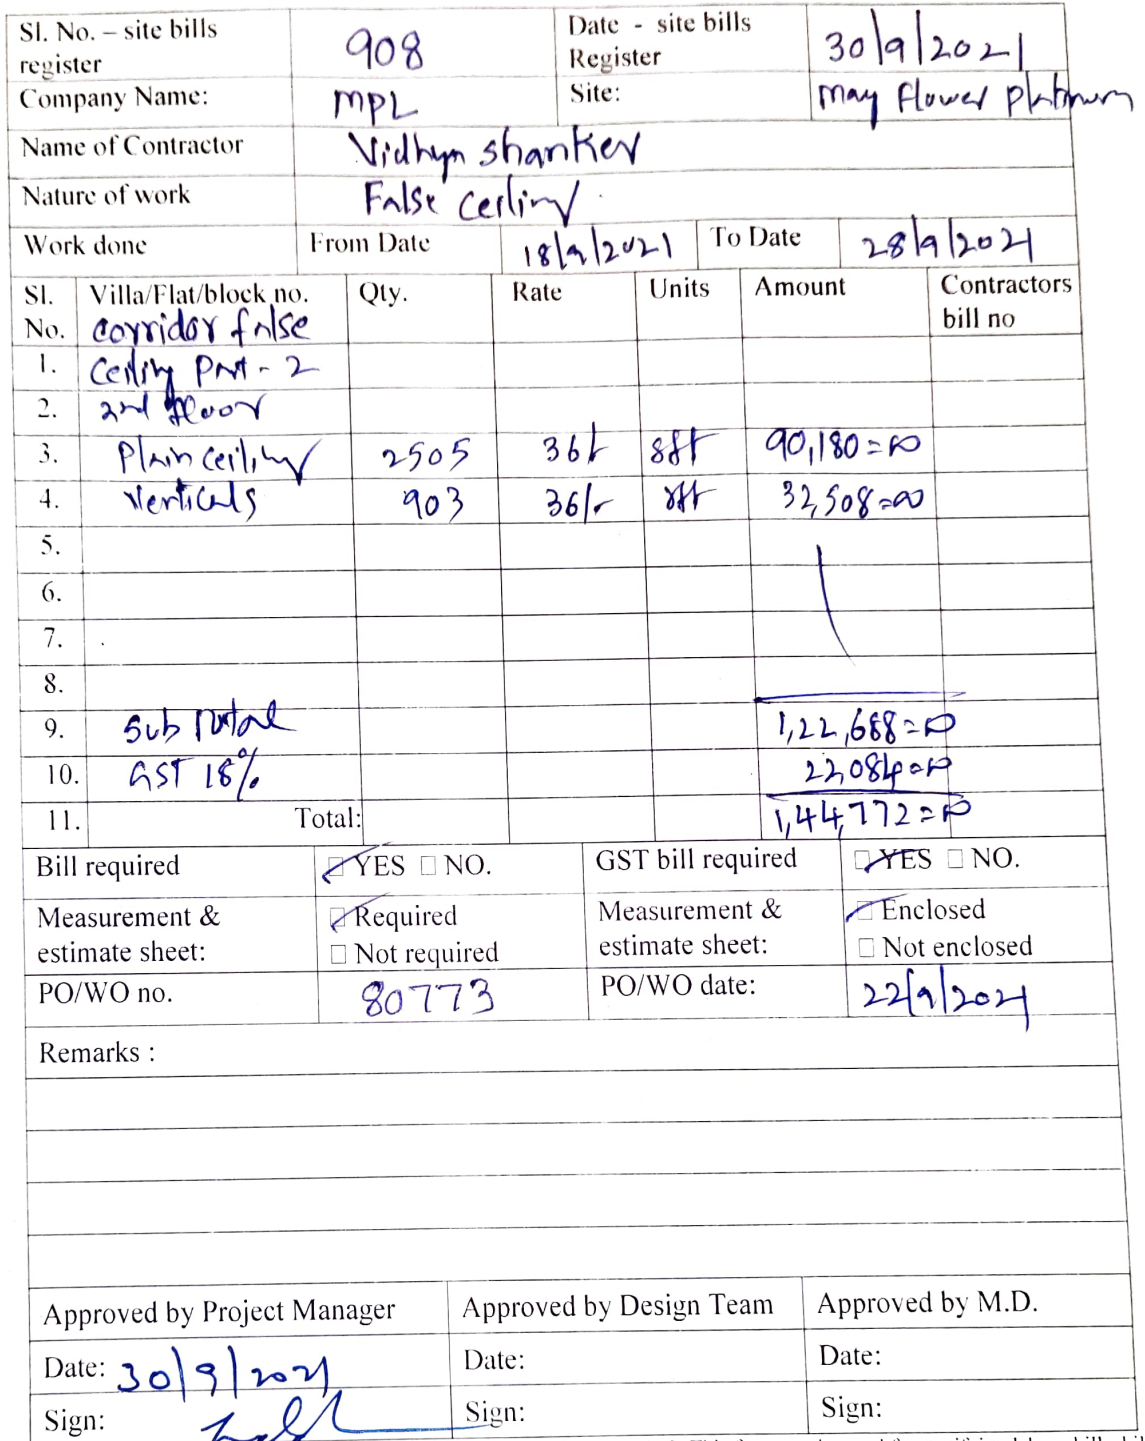 Sl. No. – site bills register 908 Date - site bills Register 30/9/2021
Company Name: MPL Site: May Flower Platinum
Name of Contractor Vidhya Shanker
Nature of work False Ceiling
Work done From Date 18/9/2021 To Date 28/9/2021
Sl. No. Villa/Flat/block no. Qty. Rate Units Amount Contractors bill no
corridor false
1. Ceiling Part - 2
2. 2nd floor
3. Plain ceiling 2505 36/- sft 90,180=00
4. Verticals 903 36/- rft 32,508=00
5.
6.
7.
8.
9. Sub Total 1,22,688=00
10. GST 18% 22,084=00
11. Total: 1,44,772=00
Bill required ☑ YES ☐ NO. GST bill required ☑ YES ☐ NO.
Measurement & estimate sheet: ☑ Required ☐ Not required Measurement & estimate sheet: ☑ Enclosed ☐ Not enclosed
PO/WO no. 80773 PO/WO date: 22/9/2021
Remarks :
Approved by Project Manager Approved by Design Team Approved by M.D.
Date: 30/9/2021 Date: Date:
Sign: Sign: Sign: